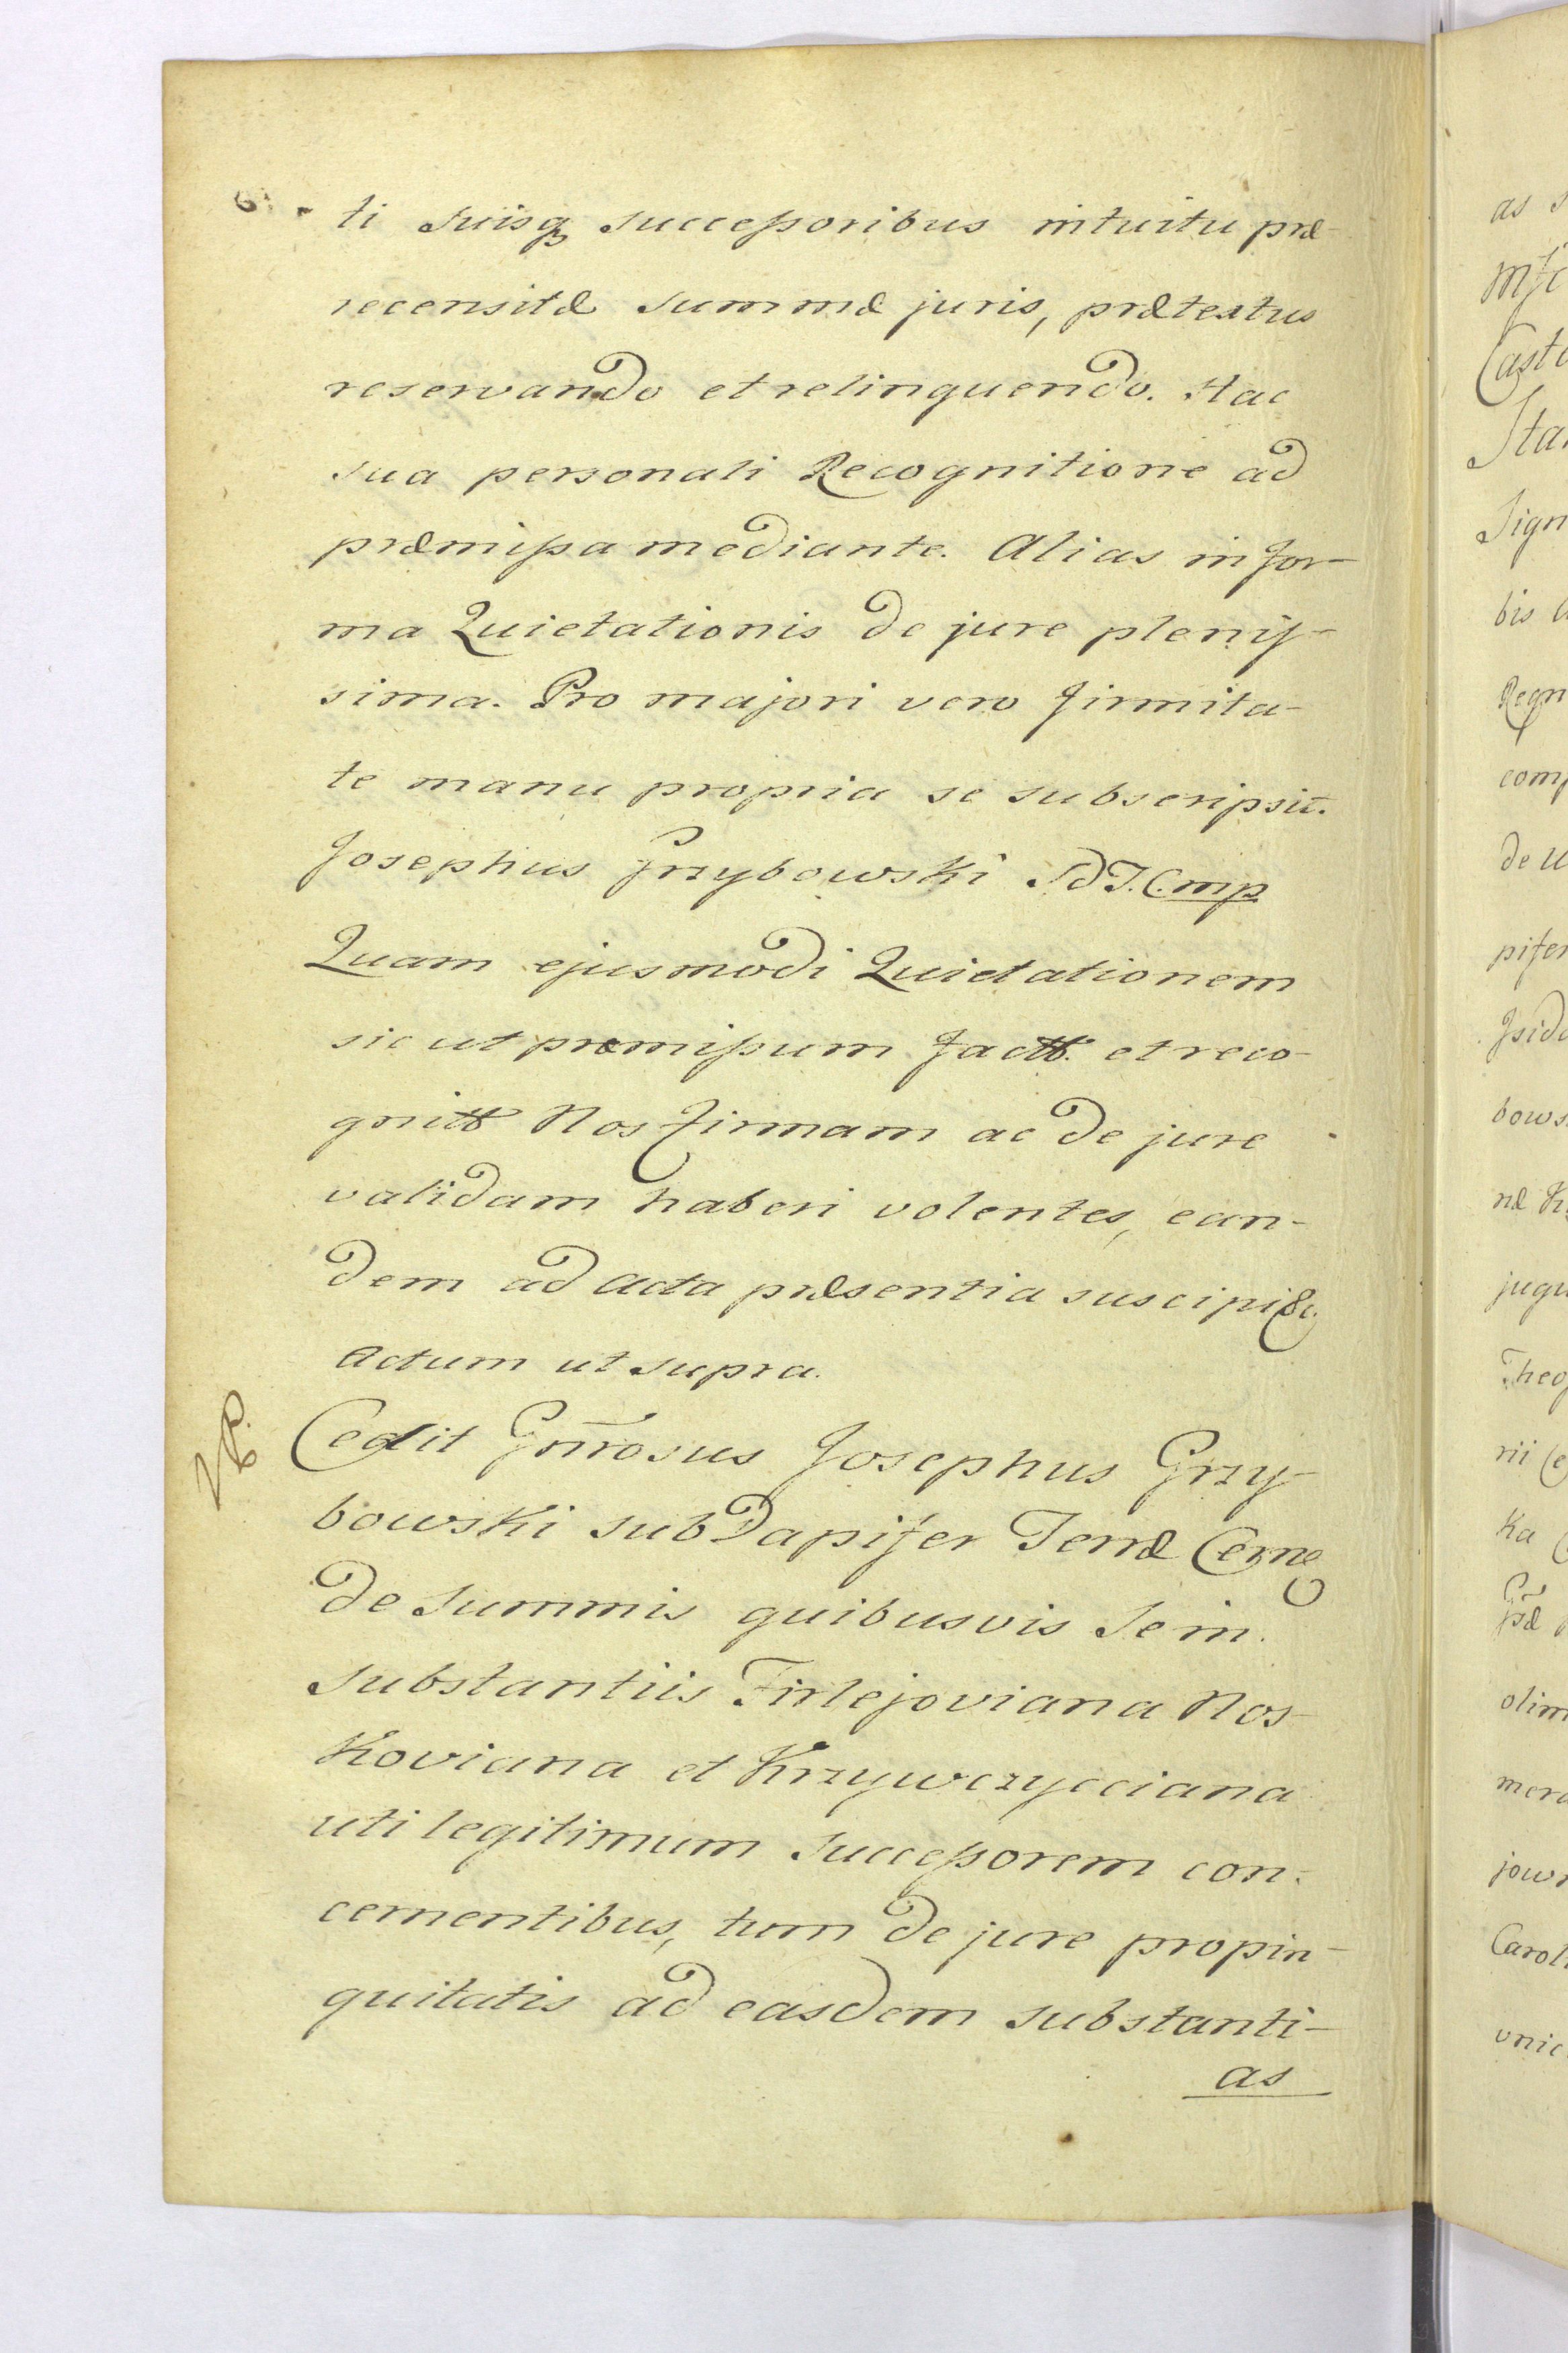 6.
ti suisq successoribus intuitu præ-
recensitæ summæ juris, prætextus
reservando et relinquendo. Hac
sua personali Recognitione ad
præmissa mediante. Alias in for-
ma Quietationis de jure plenis-
sima. Pro majori vero firmita-
te manu propria se subscripsit.
Josephus Grzybowski SdT.C.mp
Quam ejusmodi Quietationem
sic ut præmissum factt. et reco-
gnitt Nos firmam ac de jure
validam haberi volentes, ean-
dem ad acta præsentia suscipi &c.
Actum ut supra.
Cedit Gnrosus Josephus Grzy-
bowski subDapifer Terræ Cerne
de summis quibusvis se in
substantiis Firlejoviana Nos-
koviana et Krzywczycciana
uti legitimum successorem con-
cernentibus, tum de jure propin-
quitatis ad easdem substanti-
as
as
Casto
Sign
bis
Regn
comp
de
pifer
Jsido
bows
næ
jugu
Theo
rii
ka
olim
jow
Caroli
unic